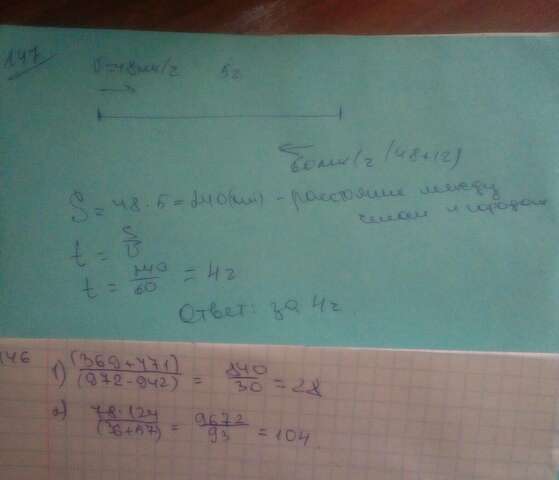 147
V=48км/ч 5ч
60км/ч (48+12)
S = 48 · 5 = 240(км) - расстояние между
селом и городом
t = S/V
t = 240/60 = 4ч
Ответ: за 4ч.
146
1) (369+471)/(972-942) = 840/30 = 28
2) 78·124/(36+57) = 9672/93 = 104